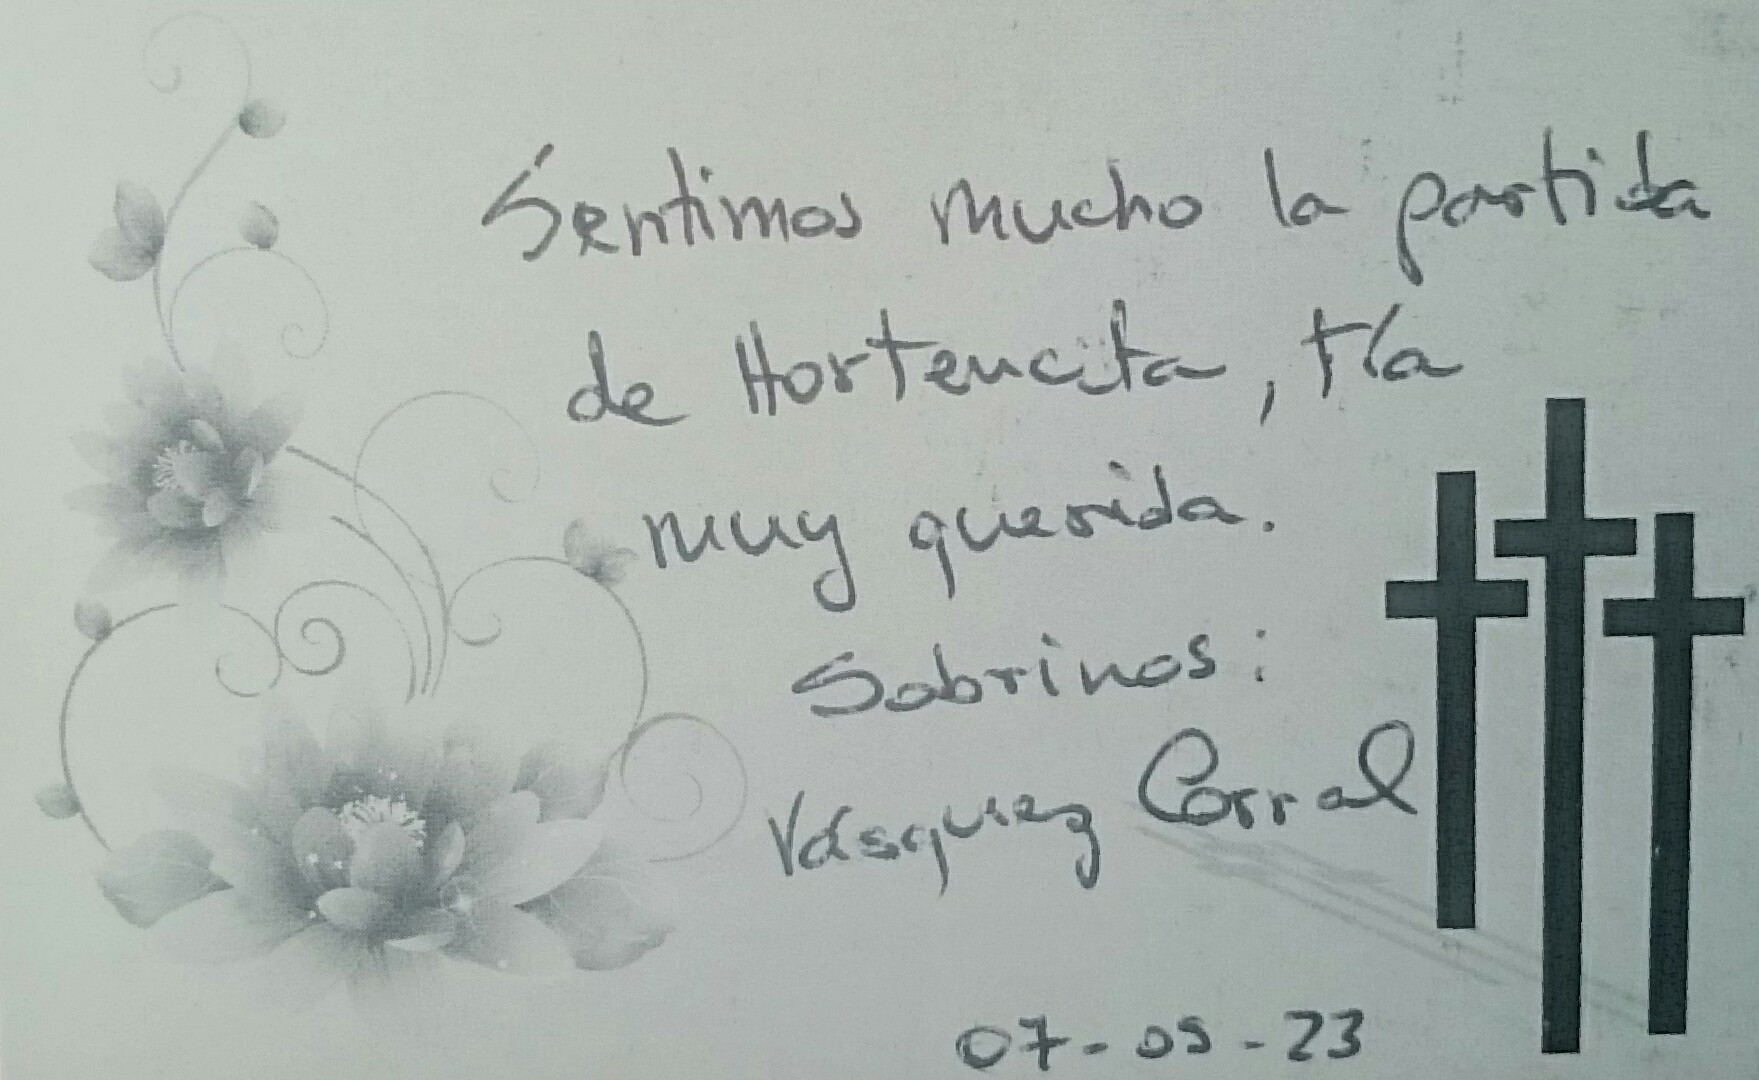 Sentimos mucho la partida
de Hortencita, tía
muy querida.
Sobrinos:
Vásquez Corral
07-05-23